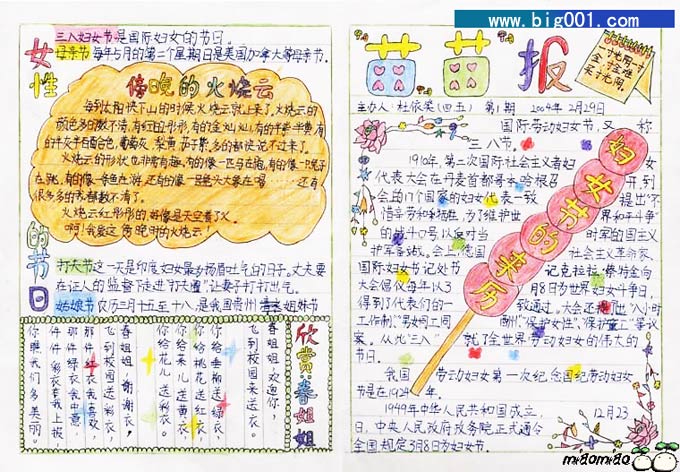 www.big001.com
女性的节日
三八妇女节是国际妇女的节日。
母亲节 每年5月的第二个星期日是美国加拿大等母亲节。
傍晚的火烧云
每到太阳快下山的时候火烧云就上来了。火烧云的
颜色多的数不清,有红彤彤的,有的金灿灿,有的半紫半黄,有
的半灰半百合色,葡萄灰,梨黄,茄子紫,多的都说也说不过来了。
火烧云的形状也非常有趣,有的像一匹马在跑,有的像一只兔子
在跳,有的像一条鱼在游,还有的像一只
很多多的都数不清了。
火烧云红彤彤的,好像是天空着了火。
啊!我爱这傍晚时的火烧云!
打夫节 这一天是印度妇女最为扬眉吐气的日子。丈夫要
在证人的监督下走进"打夫墙"让妻子打打出气。
姑娘节 农历三月十五至十八,是我国贵州 姐妹节
欣赏:春姐姐
春姐姐,欢迎你,
飞到校园来送衣。
你给垂柳送绿衣,
你给桃花送红衣,
你给茶儿送黄衣,
你给花儿送彩衣。
春姐姐,谢谢衣,
飞到校园送彩衣。
那件红衣我喜欢,
那件绿衣我中意,
件件彩衣套我上报,
你瞧我们多美丽。
苗苗报
一寸光阴一寸
金,寸金难
买寸光阴。
主办人:杜依柔(四五) 第1期 2004年2月29日
妇女节的来历
国际劳动妇女节,又称
三八节。
1910年,第二次国际社会主义者妇女
代表大会在丹麦首都哥本哈根召开,到
会的17个国家的妇女代表一致提出"不
惜辛劳 ,为了维护世界和平斗争"
的战斗口号,以反对当时军的国主义
扩军备战。会上,德国社会主义革命家、
国际妇女节记处书记克拉拉·蔡特金向
大会倡仪每年以3月8日为世界妇女斗争日,
得到了代表们的一致通过。大会还提出"八小时
工作制""男女同工同酬","保护女性","保护童工"等议
案。从此"三八"就了全世界劳动妇女的伟大的
节日。
我国劳动妇女第一次纪念国纪劳动妇女
节是在1924年。
1949年中华人民共和国成立,12月23
日,中央人民政府政务院正式通令
全国规定3月8日为妇女节。
miaomiao